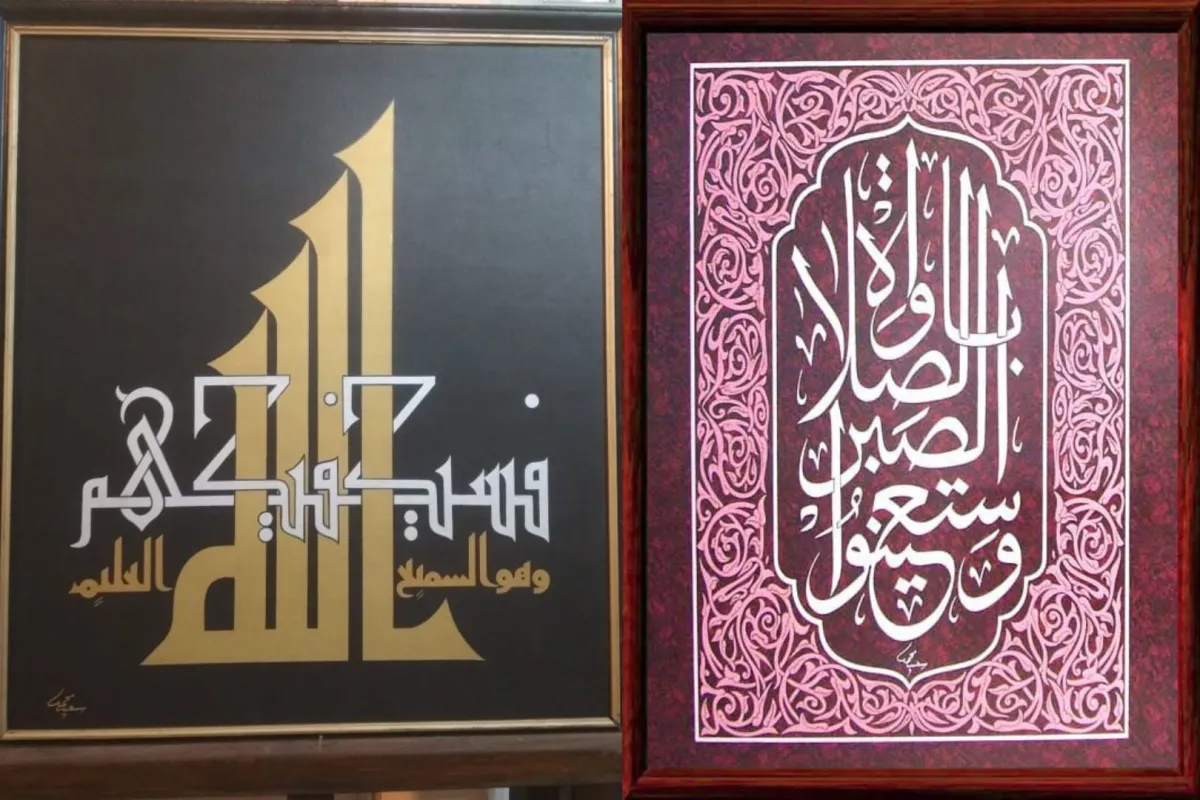 فسيكفيكهم
الله
وهو السميع العليم
واستعينوا
بالصبر
والصلاة